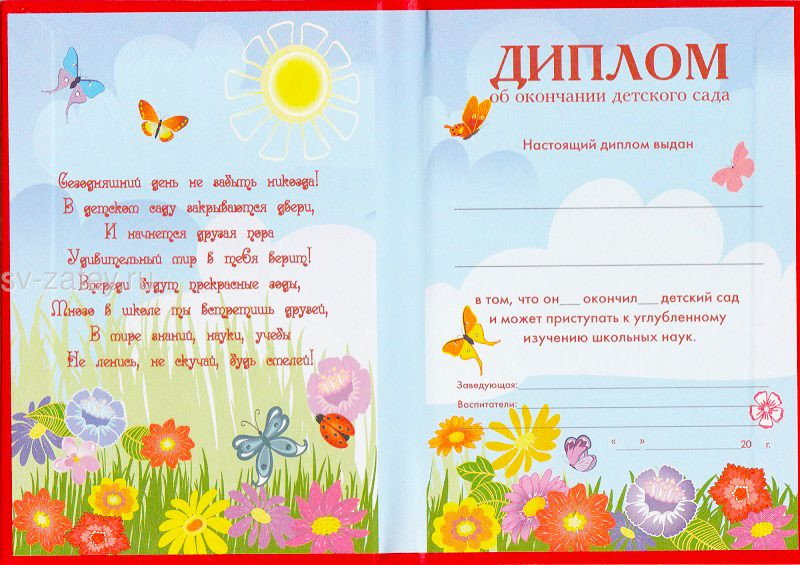 Сегодняшний день не забыть никогда!
В детском саду закрываются двери,
И начнется другая пора
Удивительный мир в тебя верит!
Впереди будут прекрасные годы,
Много в школе ты встретишь друзей,
В мире знаний, науки, учебы
Не ленись, не скучай, будь смелей!
sv-zatey.ru
ДИПЛОМ
об окончании детского сада
Настоящий диплом выдан
в том, что он___ окончил___ детский сад
и может приступать к углубленному
изучению школьных наук.
Заведующая:
Воспитатели:
"___" 20 г.